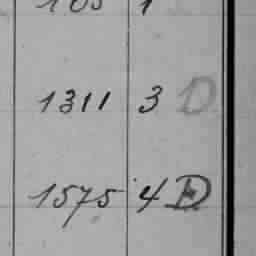 1311 3 D
1575 4 D